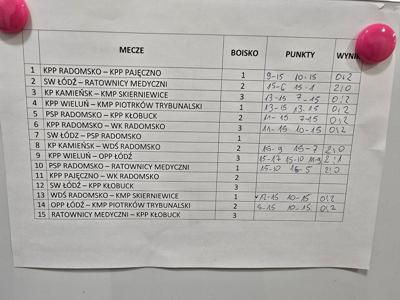 MECZE BOISKO PUNKTY WYNIK
1 KPP RADOMSKO – KPP PAJĘCZNO 1 9-15 10-15 0:2
2 SW ŁÓDŹ – RATOWNICY MEDYCZNI 2 15-6 15-1 2:0
3 KP KAMIEŃSK – KMP SKIERNIEWICE 3 13-15 7-15 0:2
4 KPP WIELUŃ – KMP PIOTRKÓW TRYBUNALSKI 1 13-15 13-15 0:2
5 PSP RADOMSKO – KPP KŁOBUCK 2 11-15 7-15 0:2
6 KPP RADOMSKO – WK RADOMSKO 3 11-15 10-15 0:2
7 SW ŁÓDŹ – PSP RADOMSKO 1
8 KP KAMIEŃSK – WDŚ RADOMSKO 2 15-9 15-7 2:0
9 KPP WIELUŃ – OPP ŁÓDŹ 3 15-17 15-10 2:1
10 PSP RADOMSKO – RATOWNICY MEDYCZNI 1 15-10 15-5 2:0
11 KPP PAJĘCZNO – WK RADOMSKO 2
12 SW ŁÓDŹ – KPP KŁOBUCK 3
13 WDŚ RADOMSKO – KMP SKIERNIEWICE 1 10-15 0:2
14 OPP ŁÓDŹ – KMP PIOTRKÓW TRYBUNALSKI 2 5-15 10-15 0:2
15 RATOWNICY MEDYCZNI – KPP KŁOBUCK 3